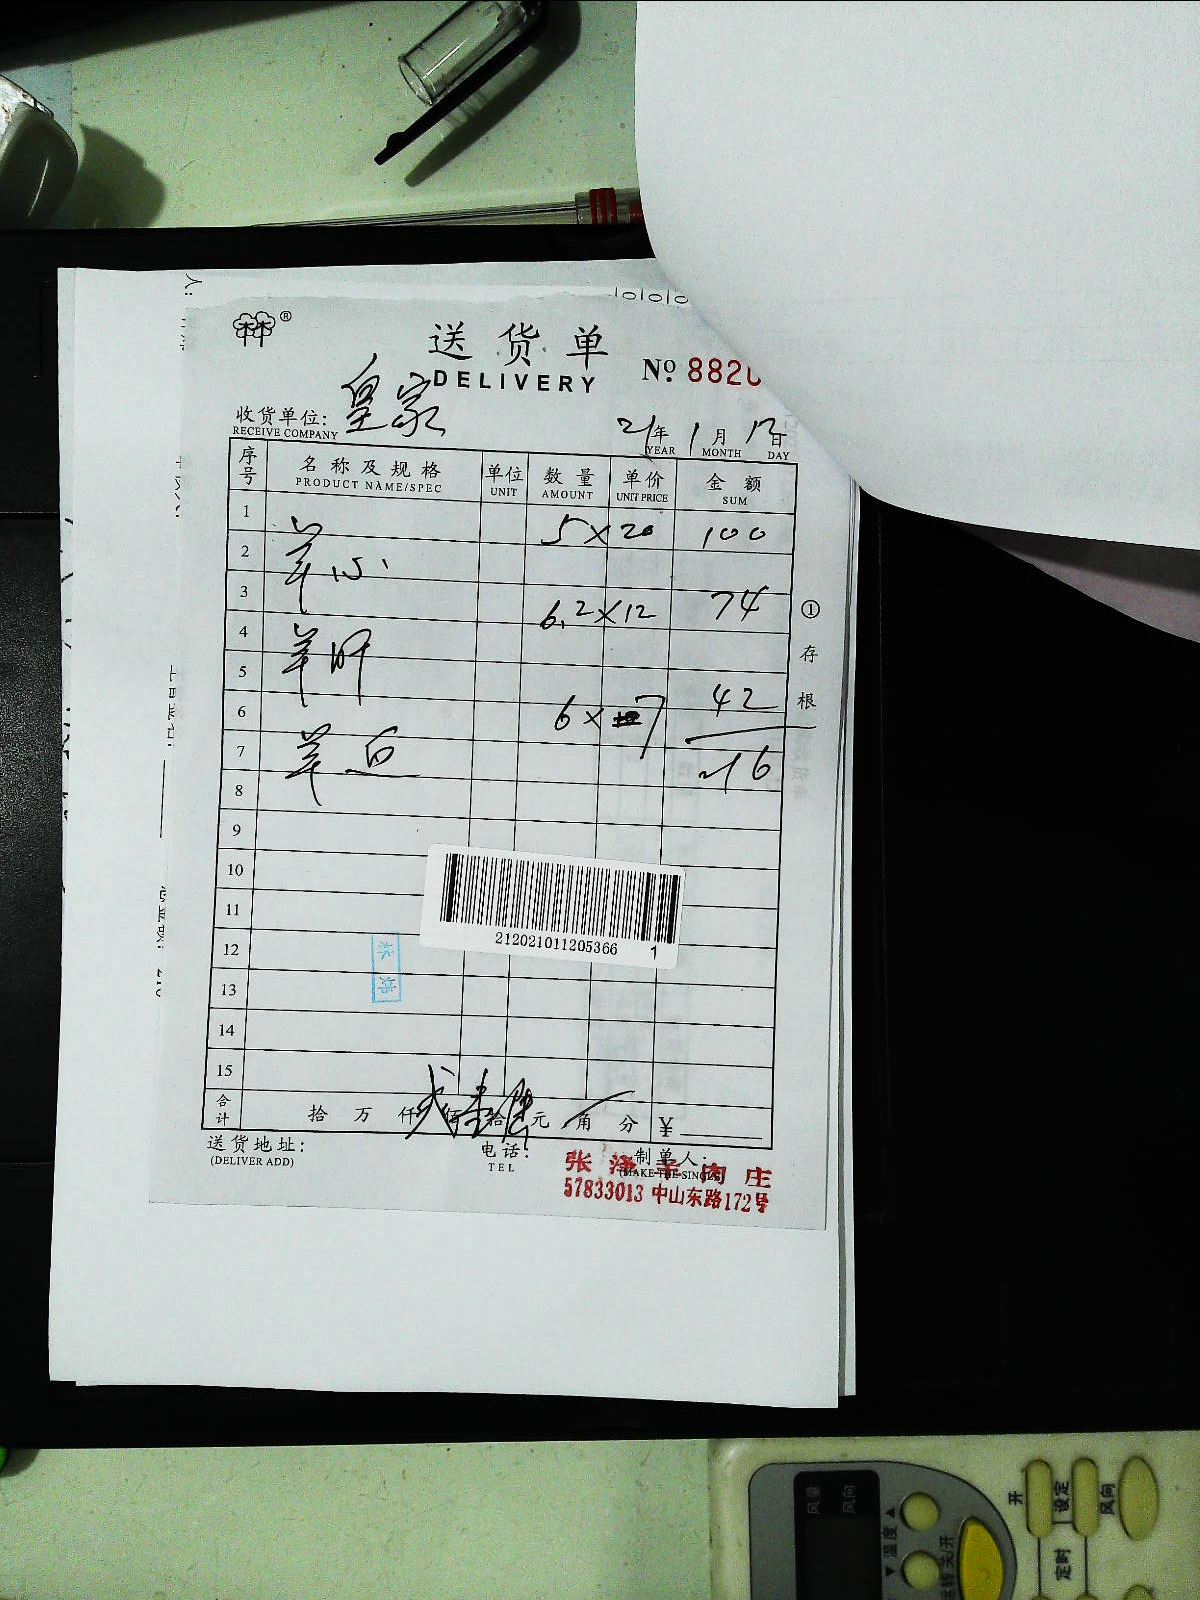 林®
送货单
DELIVERY
No. 8820
收货单位: 皇家
RECEIVE COMPANY
21年 1月 12日
YEAR MONTH DAY
序号 名称及规格 单位 数量 单价 金额
PRODUCT NAME/SPEC UNIT AMOUNT UNIT PRICE SUM
1 5×20 100
2 羊心
3 6.2×12 74
4 羊肝
5
6 6×7 42
7 羊血 216
8
9
10
11
12
13
14
15
①存根
212021011205366 1
合计 拾 万 仟 佰 拾 元 角 分 ¥
送货地址:
(DELIVER ADD)
电话:
TEL
制单人:
(MAKE THE SINGLE)
张泽羊肉庄
57833013 中山东路172号
风量 风向
温度
运转 关/开
开
设定
定时
风向